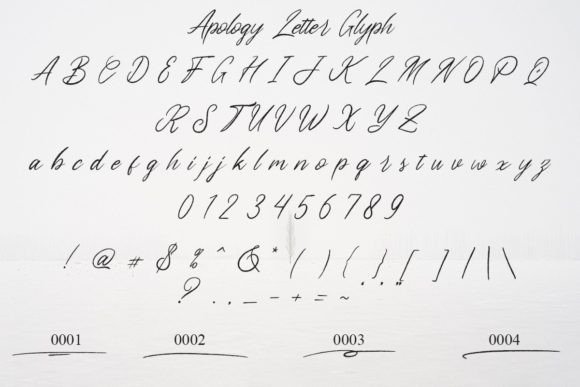 Apology Letter Glyph
A B C D E F G H I J K L M N O P Q
R S T U V W X Y Z
a b c d e f g h i j k l m n o p q r s t u v w x y z
0 1 2 3 4 5 6 7 8 9
! @ # $ % ^ & * ( ) { , } . [ " ] / | \
? . , _ - + = ~
0001 0002 0003 0004